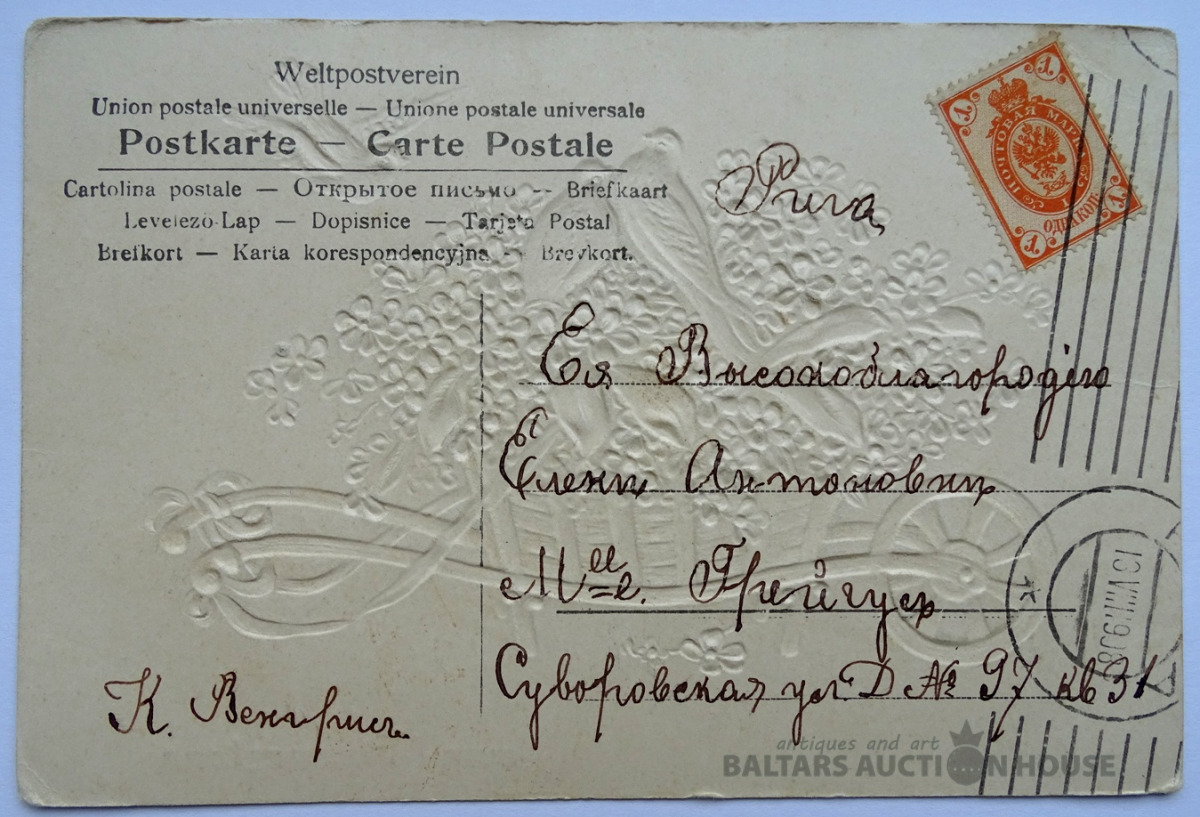 Weltpostverein
Union postale universelle — Unione postale universale
Postkarte — Carte Postale
Cartolina postale — Открытое письмо -- Briefkaart
Levelező-Lap — Dopisnice — Tarjeta Postal
Brefkort — Karta korespondencyjna -- Brevkort.
1
1
ПОЧТОВАЯ МАРКА
1 КОП.
ОДНА КОП.
1
1
Рига
Ея Высокоблагородію
Еленѣ Антоновнѣ
Mlle. Грейгусъ
Суворовская ул Д № 97 кв 31
К. Венгрисъ.
antiques and art
BALTARS AUCTION HOUSE